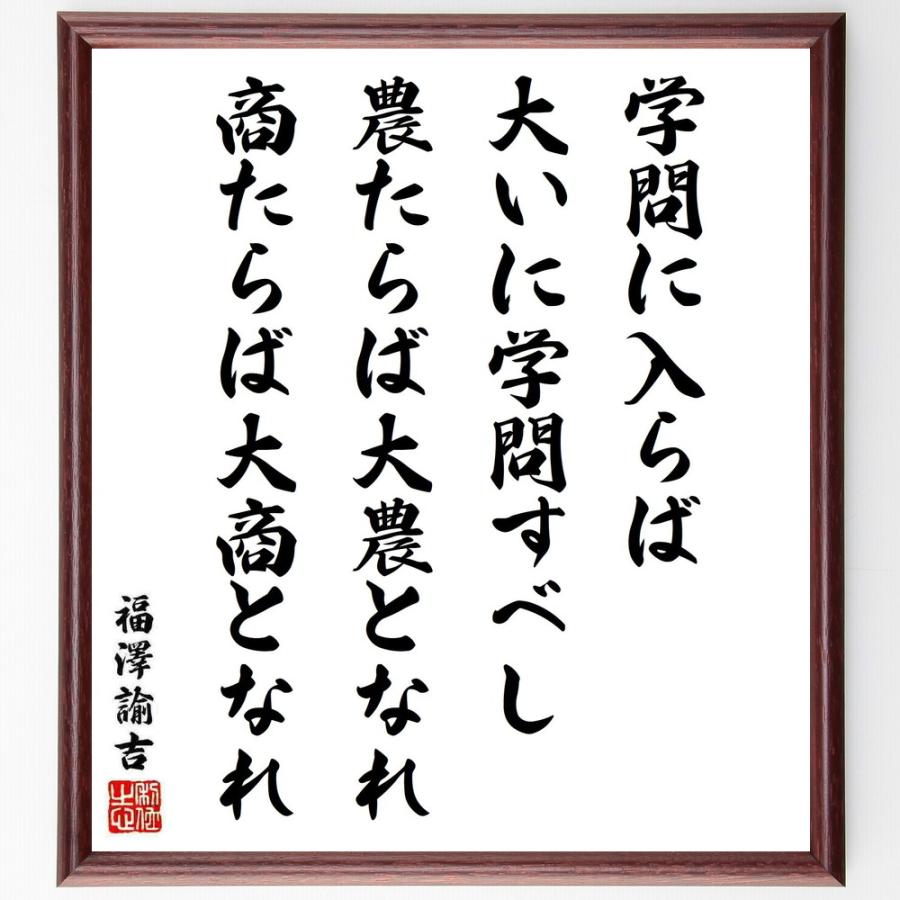 学問に入らば
大いに学問すべし
農たらば大農となれ
商たらば大商となれ
福澤諭吉